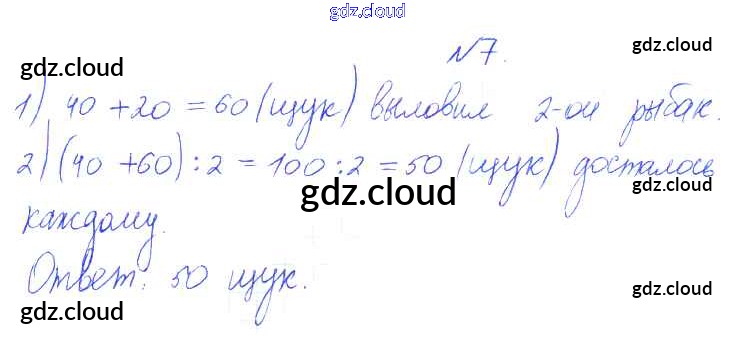 gdz.cloud
№7.
gdz.cloud
gdz.cloud
1) 40 + 20 = 60 (щук) выловил 2-ой рыбак.
2) (40 + 60) : 2 = 100 : 2 = 50 (щук) досталось
gdz.cloud
каждому.
Ответ: 50 щук.
gdz.cloud
gdz.cloud